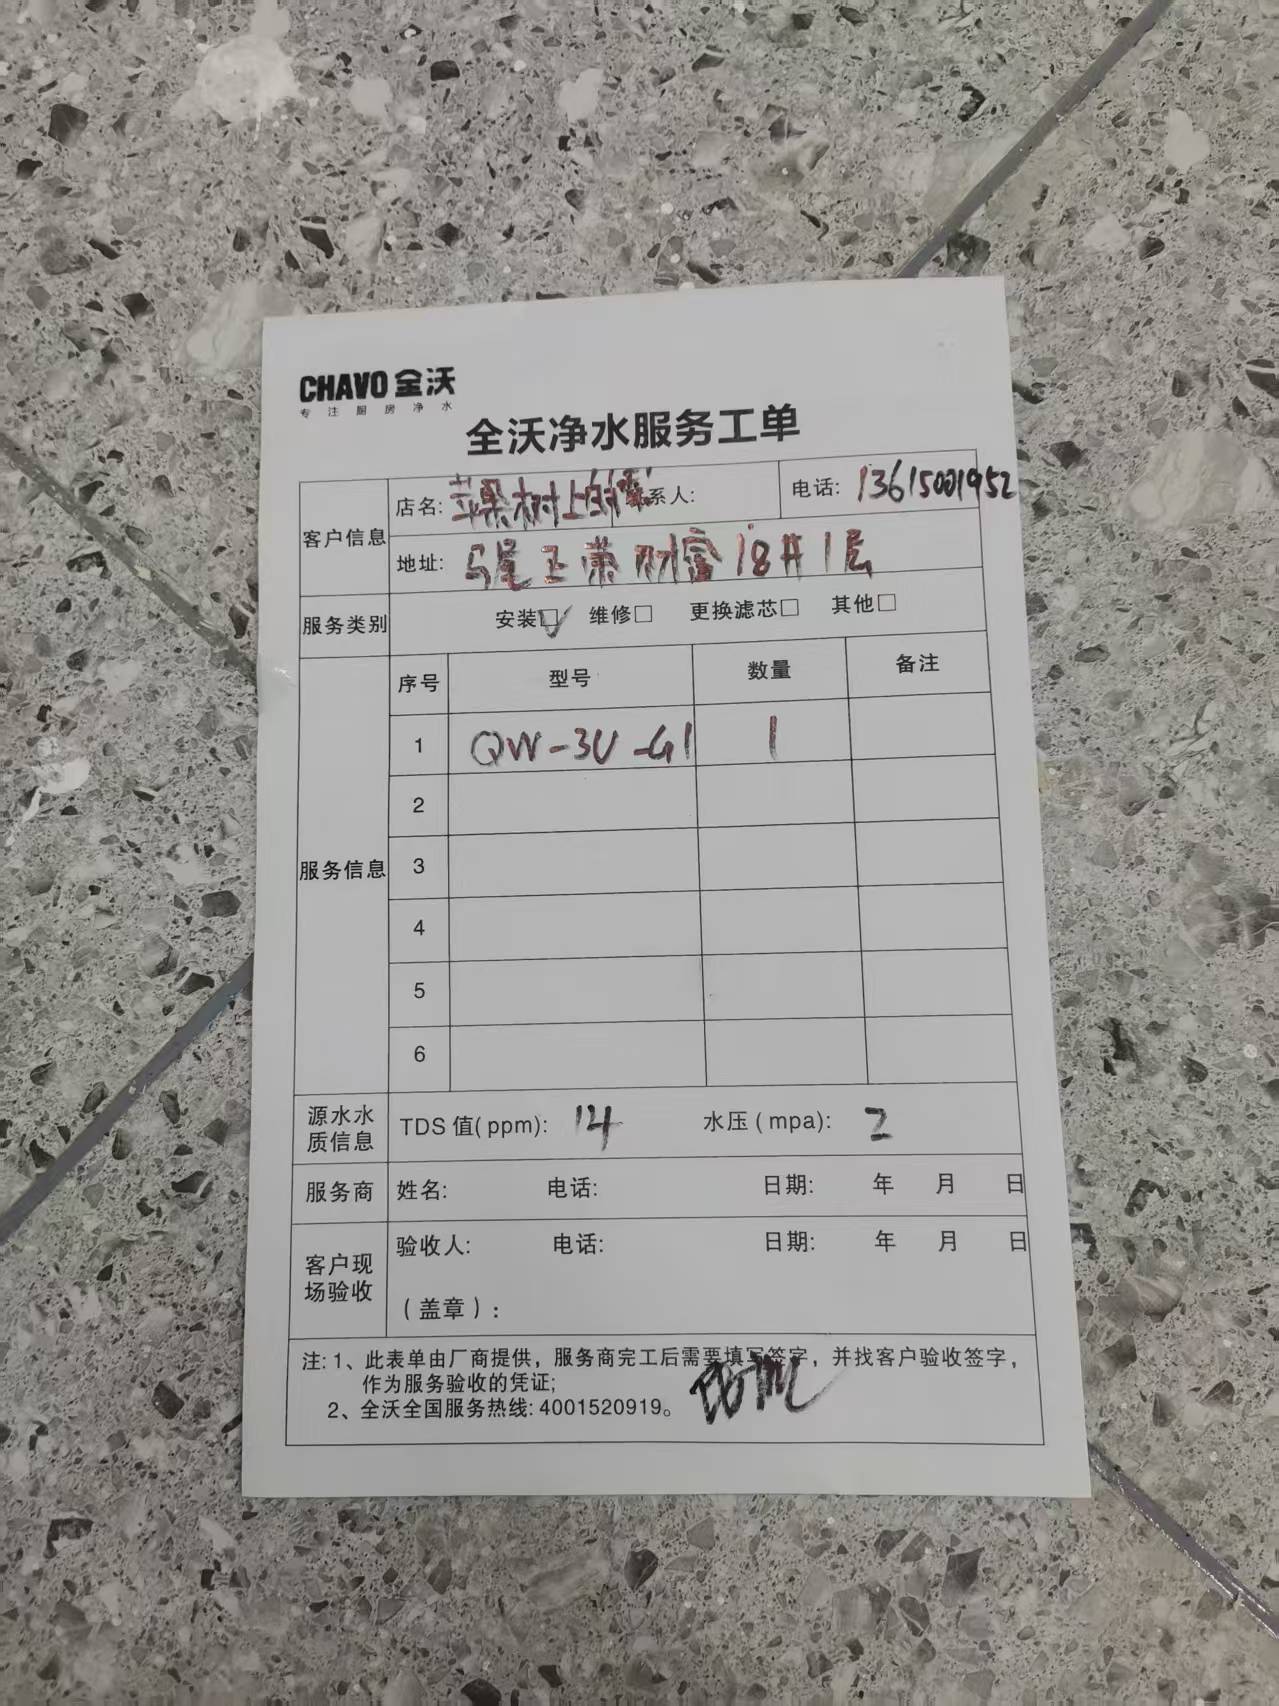 CHAVO 全沃
专注厨房净水
全沃净水服务工单
客户信息
店名: 苹果树上的 系人: 电话: 13615001952
地址: 马尾正荣财富18# 1层
服务类别 安装☑ 维修□ 更换滤芯□ 其他□
服务信息
序号 型号 数量 备注
1 QW-3U-G1 1
2
3
4
5
6
源水水质信息 TDS 值(ppm): 14 水压(mpa): 2
服务商 姓名: 电话: 日期: 年 月 日
客户现场验收 验收人: 电话: 日期: 年 月 日
（盖章）:
注: 1、此表单由厂商提供，服务商完工后需要填写签字，并找客户验收签字，
作为服务验收的凭证;
2、全沃全国服务热线: 4001520919。